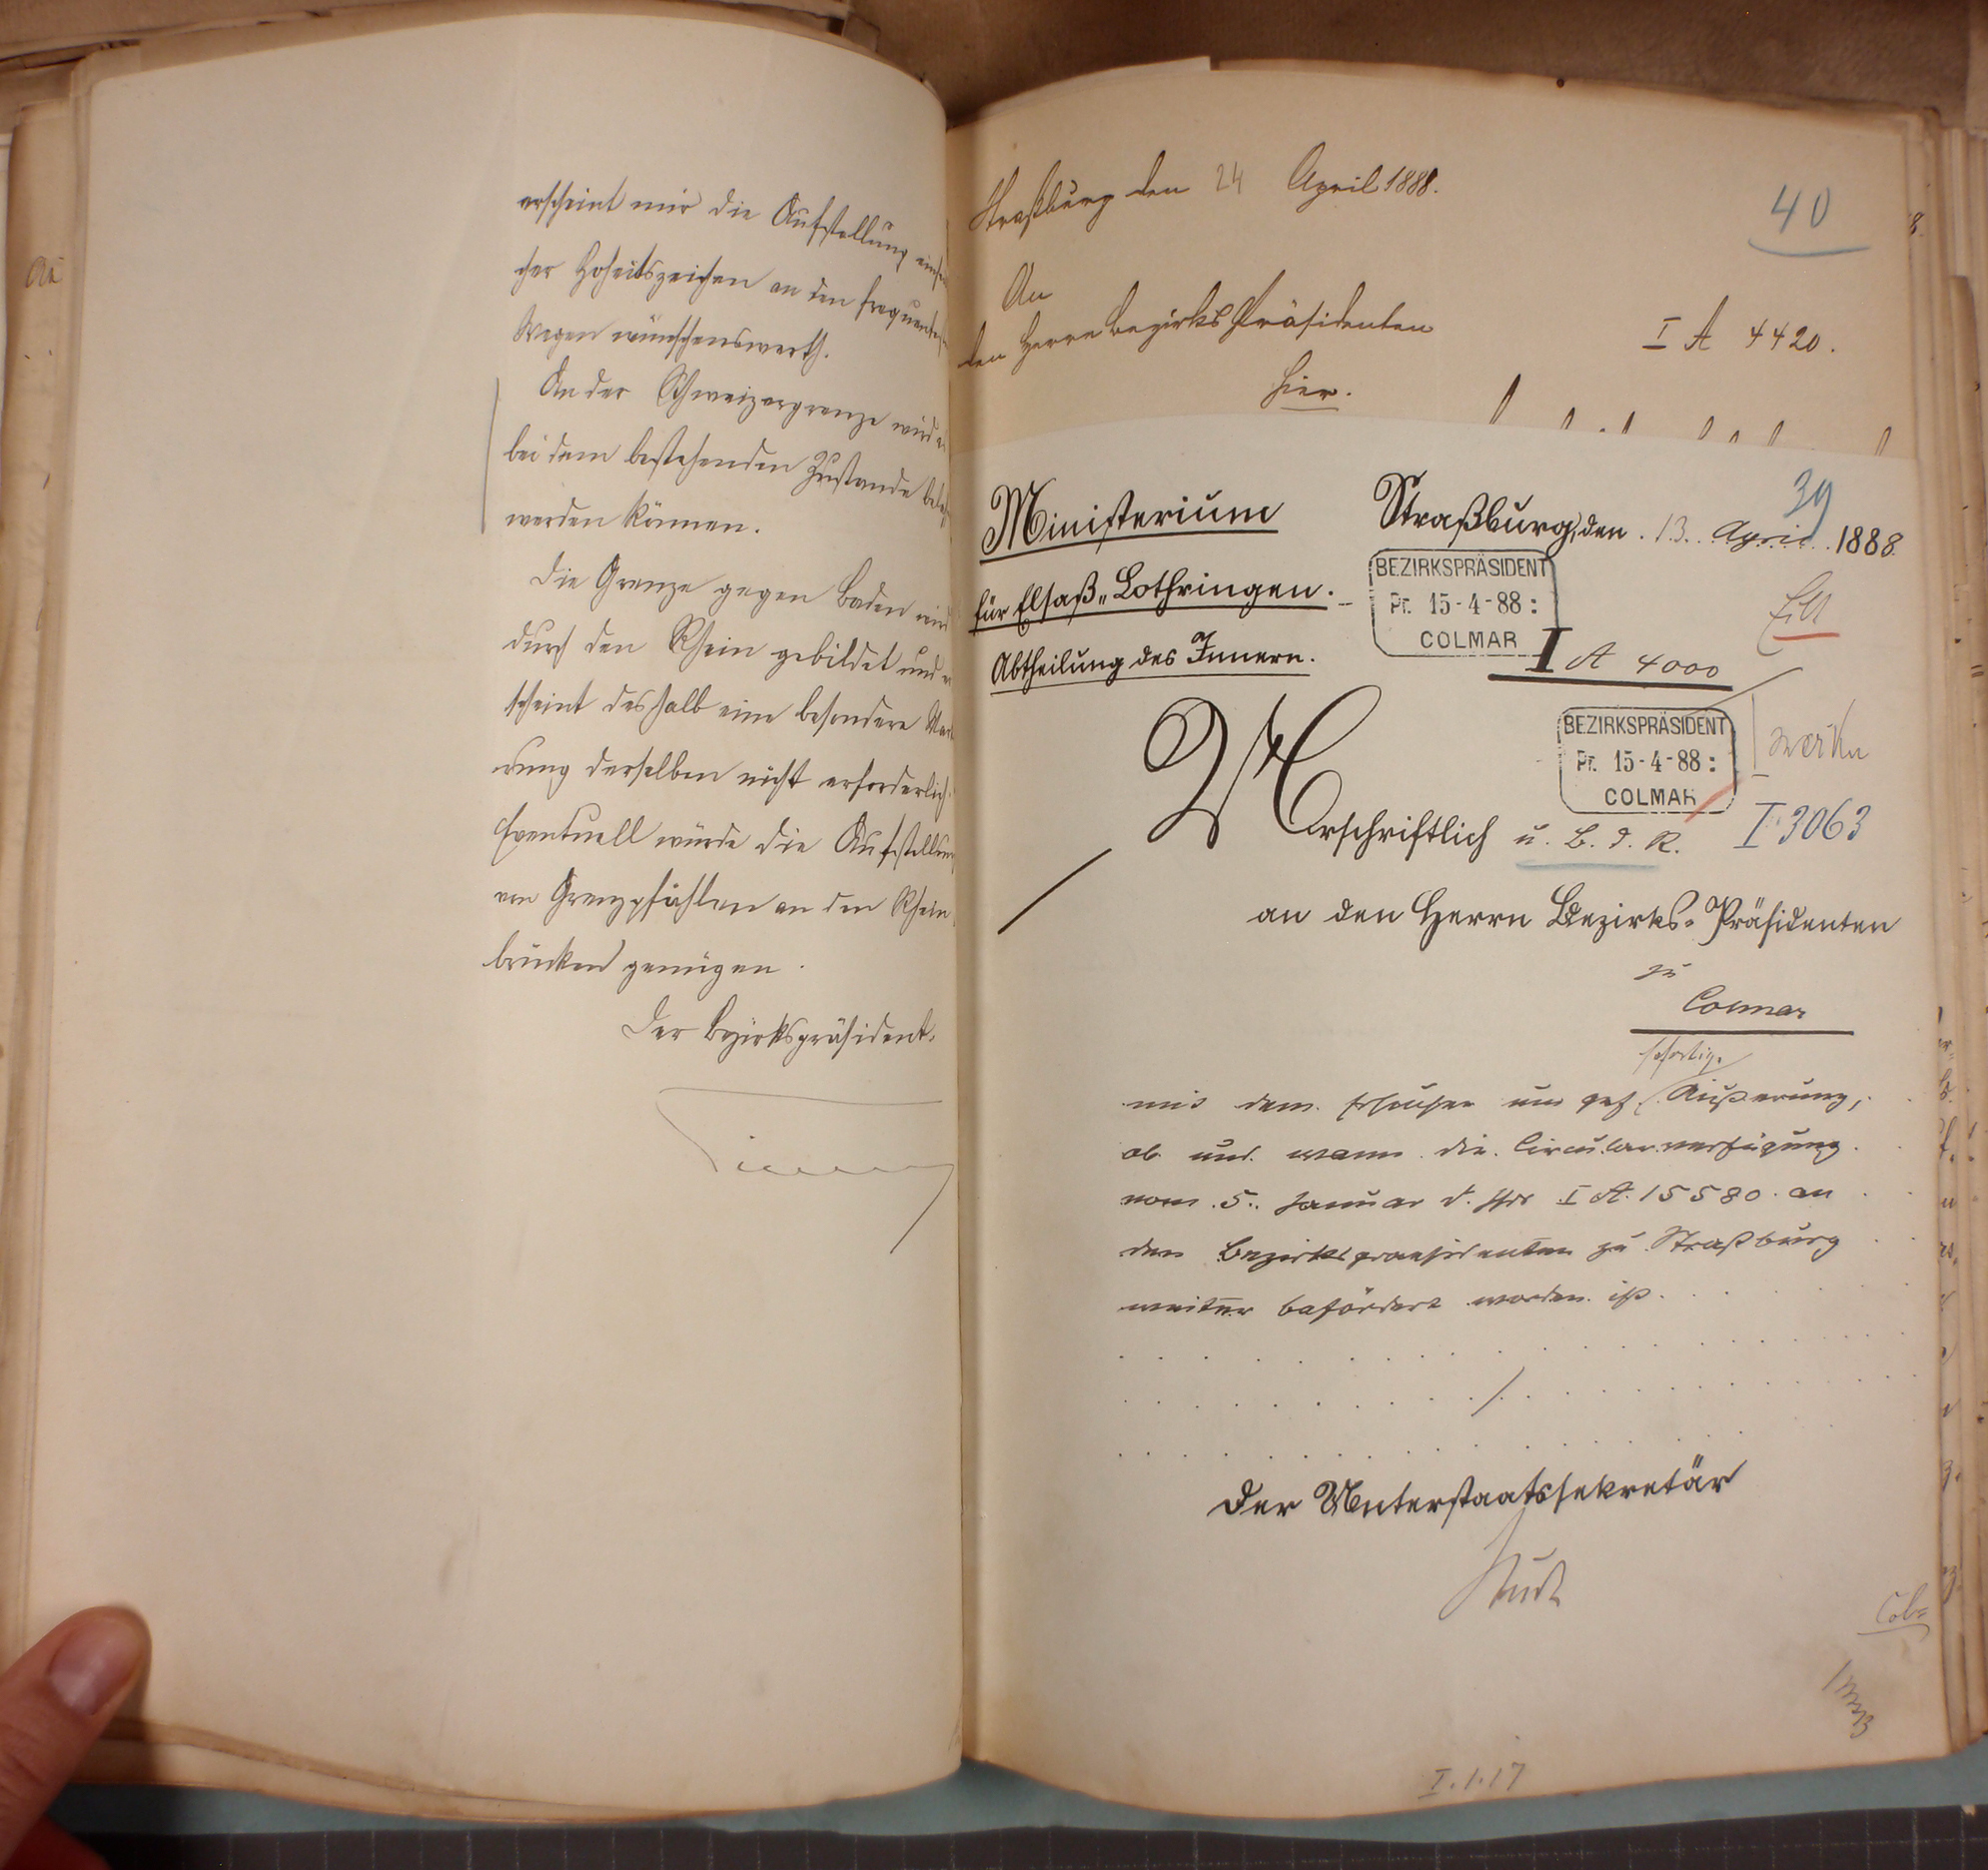 erscheint mir die Aufstellung
cher Hoheitszeichen an den frequentesten
Wegen wünschenswerth.
An der Schweizergrenze wird
bei dem bestehenden Zustande
werden können.
Die Grenze gegen Baden wird
durch den Rhein gebildet und
scheint deshalb eine besondere
rung derselben nicht erforderlich.
Eventuell würde die Aufstellung
von Grenzpfählen an den Rhein-
brücken genügen.
Der Bezirkspräsident.
Straßburg den 24 April 1888.
40
An
den Herrn Bezirks Präsidenten
hier.
I A 4420.
39
Ministerium
für Elsaß-Lothringen.
Abtheilung des Innern.
Straßburg, den 13. April 1888.
BEZIRKSPRÄSIDENT
Pr. 15-4-88:
COLMAR
Eilt
I A 4000
BEZIRKSPRÄSIDENT
Pr. 15-4-88:
COLMAR
I 3063
Urschriftlich u. B. d. R.
an den Herrn Bezirks-Präsidenten
zu
Colmar
sofortige
mit dem Ersuchen um gef. Äußerung,
ob und wann die Circularverfügung
vom 5. Januar d. Js. I A. 15580 an
den Bezirkspraesidenten zu Straßburg
weiter befördert worden ist.
Der Unterstaatssekretär
Studt
I.1.17